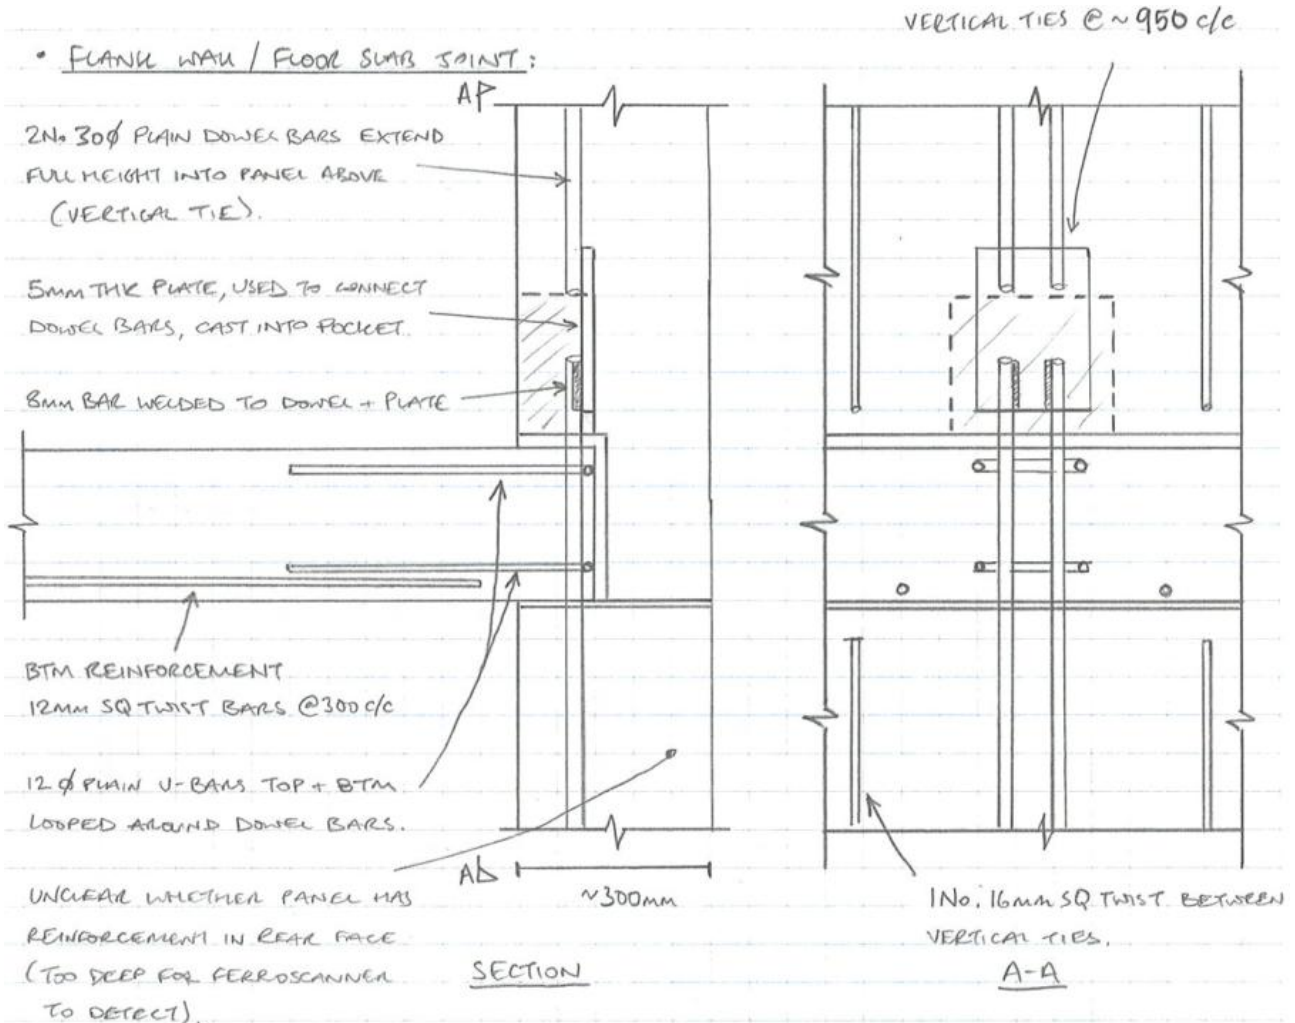 VERTICAL TIES @ ~ 950 c/c
• FLANK WALL / FLOOR SLAB JOINT:
A
2No. 30ϕ PLAIN DOWEL BARS EXTEND
FULL HEIGHT INTO PANEL ABOVE
(VERTICAL TIE).
5MM THK PLATE, USED TO CONNECT
DOWEL BARS, CAST INTO POCKET.
8MM BAR WELDED TO DOWEL + PLATE
BTM REINFORCEMENT
12MM SQ TWIST BARS @300 c/c
12 ϕ PLAIN U-BARS TOP + BTM
LOOPED AROUND DOWEL BARS.
A
~300mm
UNCLEAR WHETHER PANEL HAS
REINFORCEMENT IN REAR FACE
(TOO DEEP FOR FERROSCANNER
TO DETECT).
SECTION
1No. 16mm SQ TWIST BETWEEN
VERTICAL TIES.
A-A